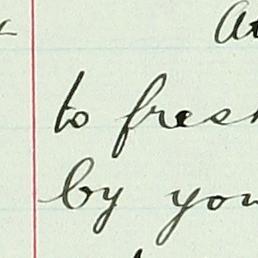 At
to fres
by you